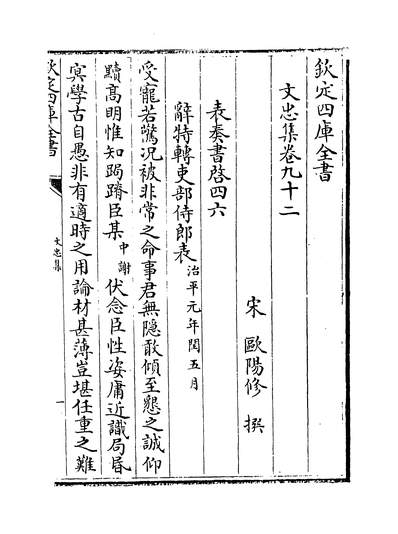 欽定四庫全書
文忠集卷九十二
宋 歐陽修 撰
表奏書啓四六
辭特轉吏部侍郎表治平元年閏五月
受寵若驚况被非常之命事君無隱敢傾至懇之誠仰
黷高明惟知跼蹐臣某中謝伏念臣性姿庸近識局昏
冥學古自愚非有適時之用論材甚薄豈堪任重之難
欽定四庫全書
文忠集
一